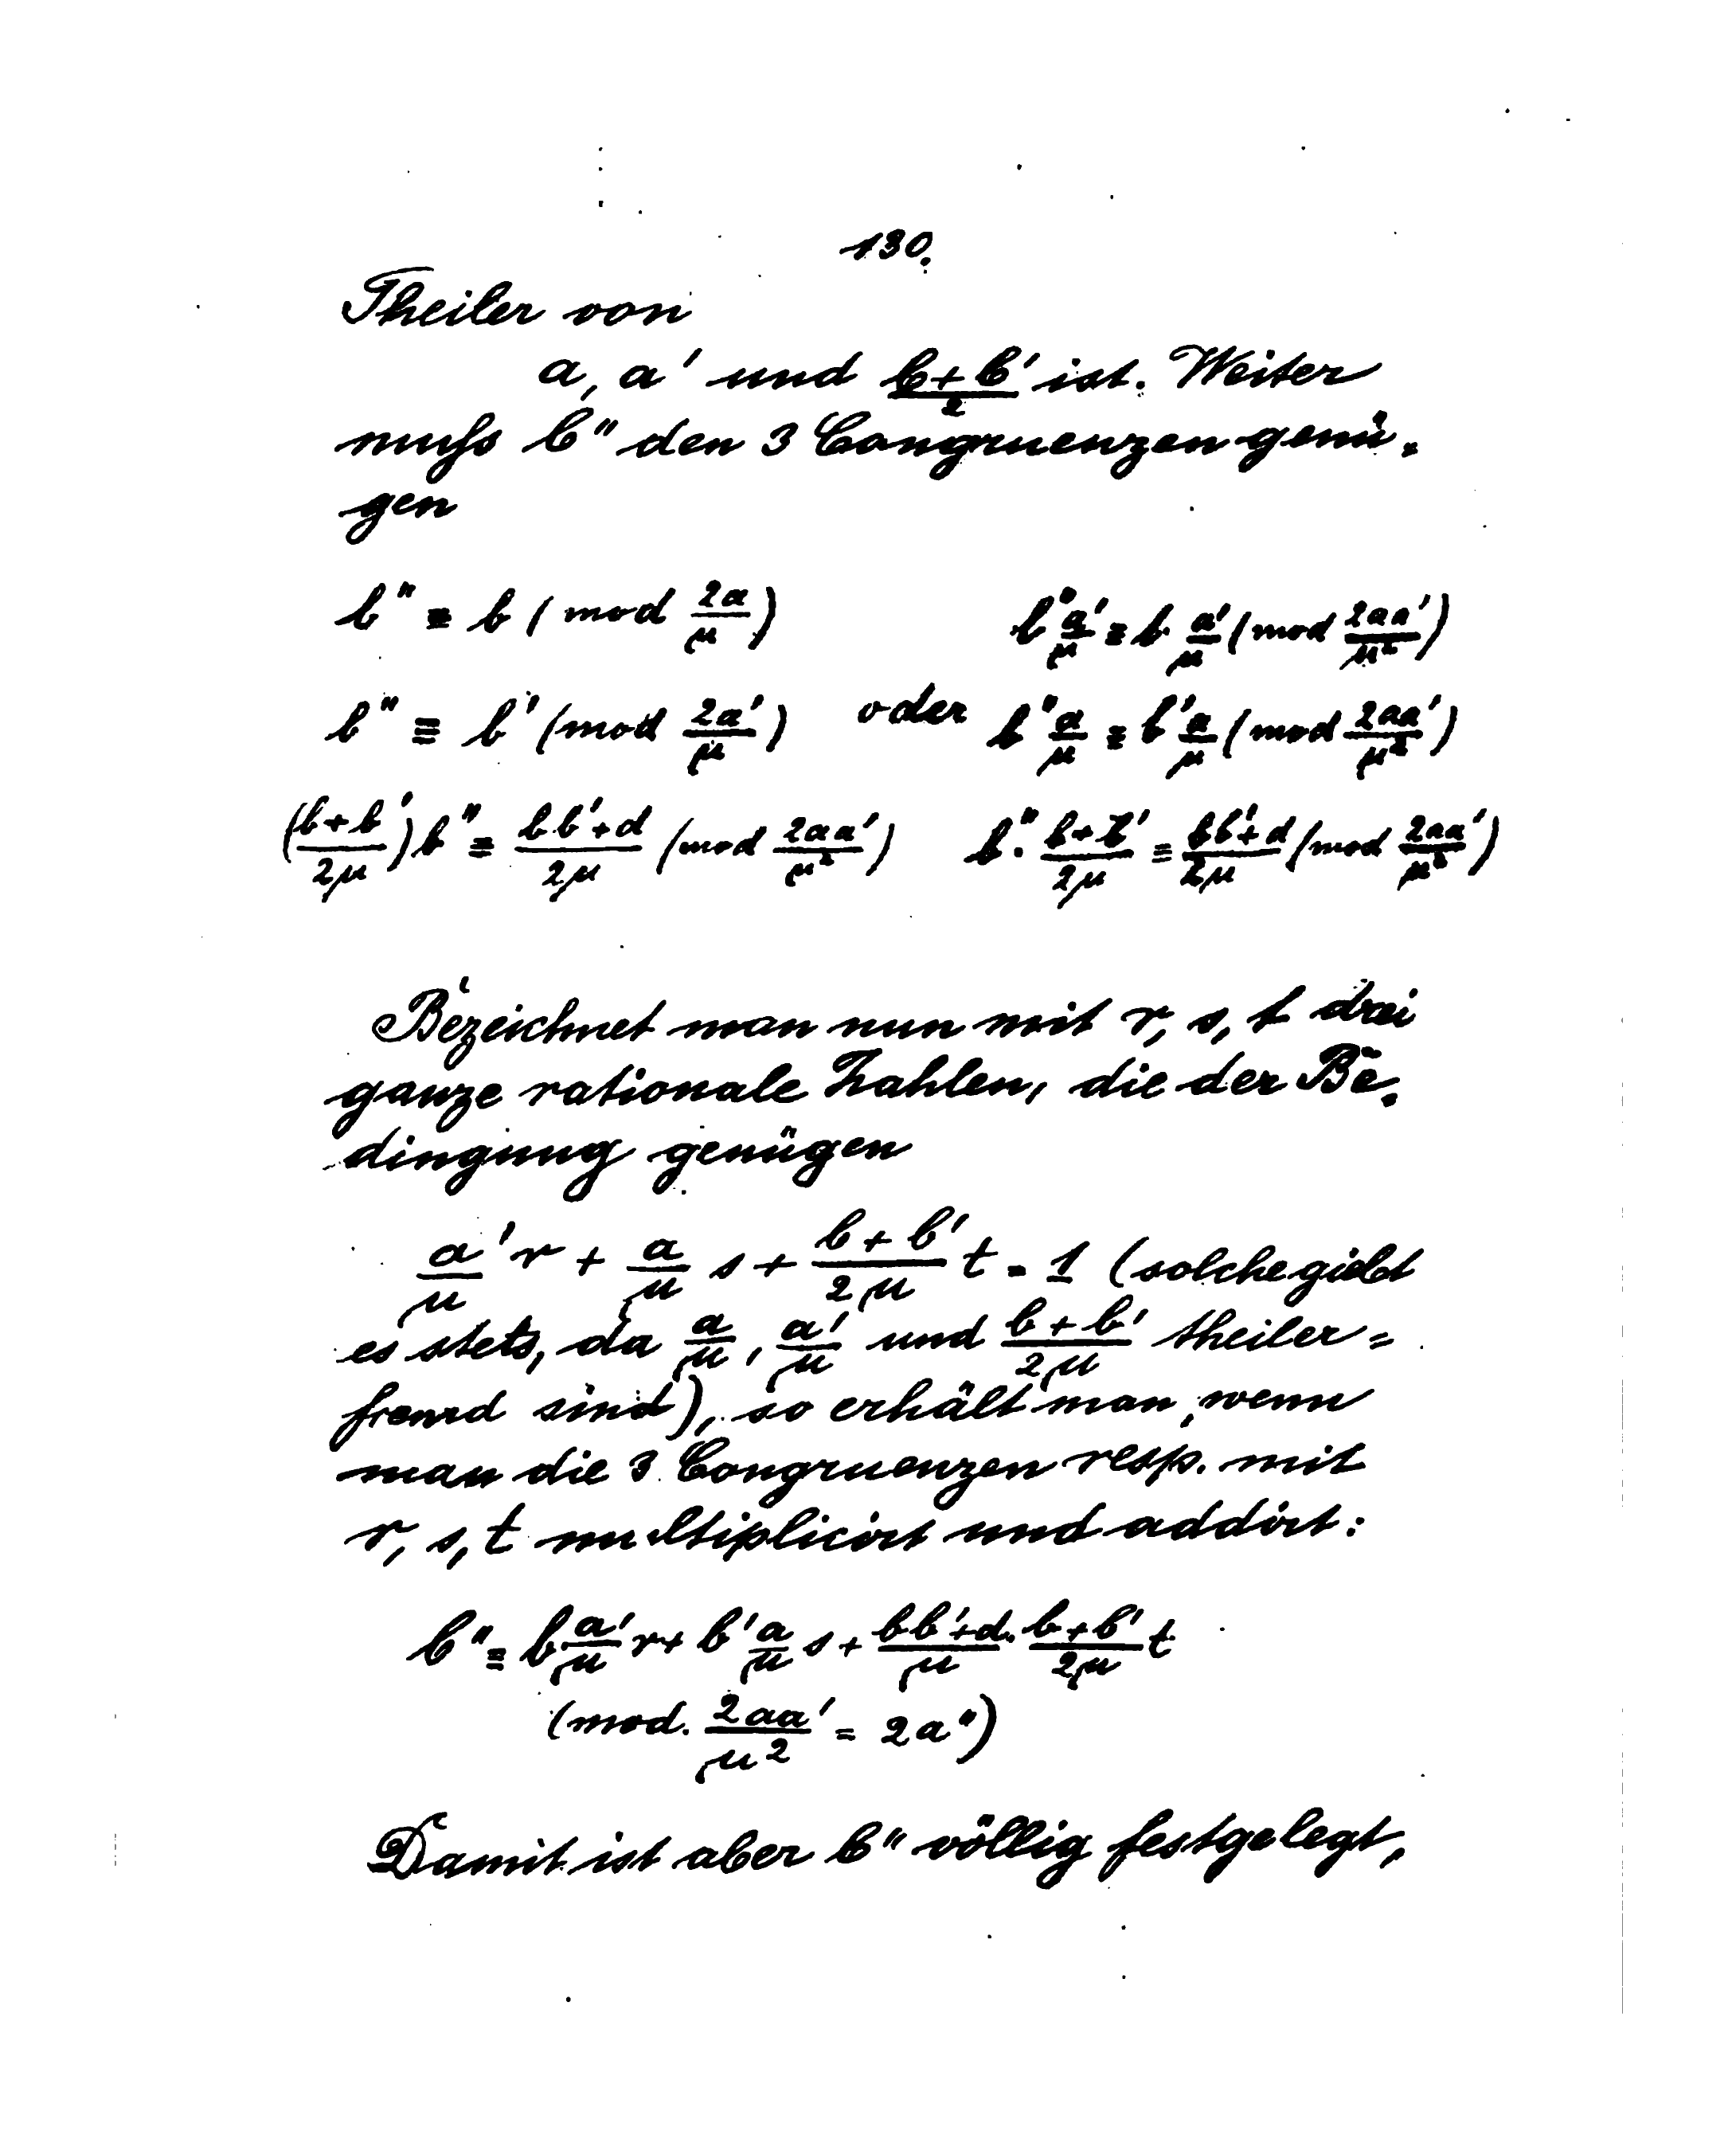 130.
Theiler von
a, a' und \frac{b+b'}{2} ist. Weiter
muſs b'' den 3 Congruenzen genü-
gen
b'' ≡ b (mod \frac{2a}{μ})    b''\frac{a'}{μ} ≡ b \frac{a'}{μ} (mod \frac{2aa'}{μ^2})
b'' ≡ b' (mod \frac{2a'}{μ})  oder  b''\frac{a}{μ} ≡ b'\frac{a}{μ} (mod \frac{2aa'}{μ^2})
(\frac{b+b'}{2μ}) b'' ≡ \frac{bb'+d}{2μ} (mod \frac{2aa'}{μ^2})    b''. \frac{b+b'}{2μ} ≡ \frac{bb'+d}{2μ} (mod \frac{2aa'}{μ^2})
Bezeichnet man nun mit r, s, t drei
ganze rationale Zahlen, die der Be-
dingung genügen
\frac{a'}{μ} r + \frac{a}{μ} s + \frac{b+b'}{2μ} t = 1 (solche giebt
es stets, da \frac{a}{μ}, \frac{a'}{μ} und \frac{b+b'}{2μ} theiler=
fremd sind), so erhält man, wenn
man die 3 Congruenzen resp. mit
r, s, t multiplicirt und addirt:
b'' ≡ b\frac{a'}{μ} r + b'\frac{a}{μ} s + \frac{bb'+d}{μ} . \frac{b+b'}{2μ} t
(mod. \frac{2aa'}{μ^2} = 2a'')
Damit ist aber b'' völlig festgelegt,